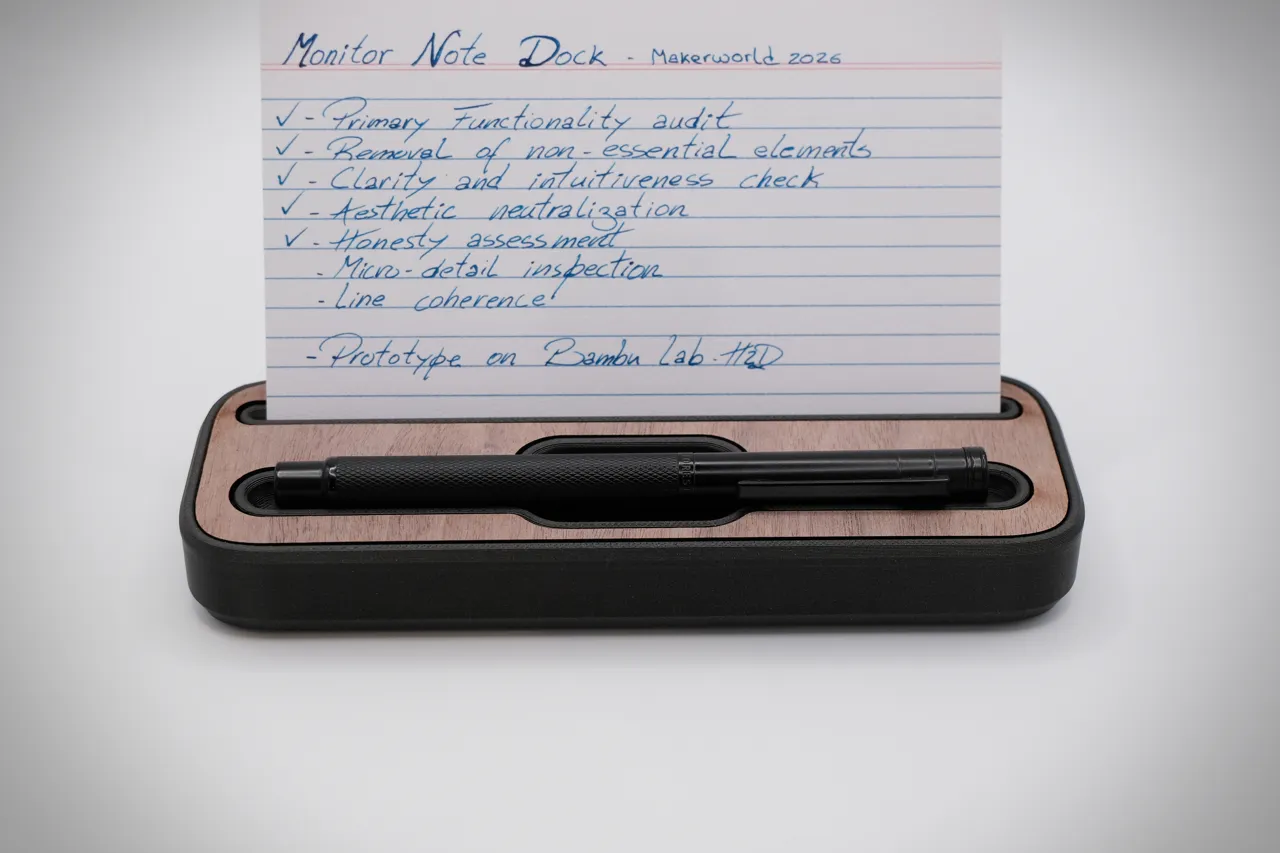 Monitor Note Dock - Makerworld 2026
✓ - Primary Functionality audit
✓ - Removal of non-essential elements
✓ - Clarity and intuitiveness check
✓ - Aesthetic neutralization
✓ - Honesty assessment
- Micro-detail inspection
- Line coherence
- Prototype on Bambu Lab H2D